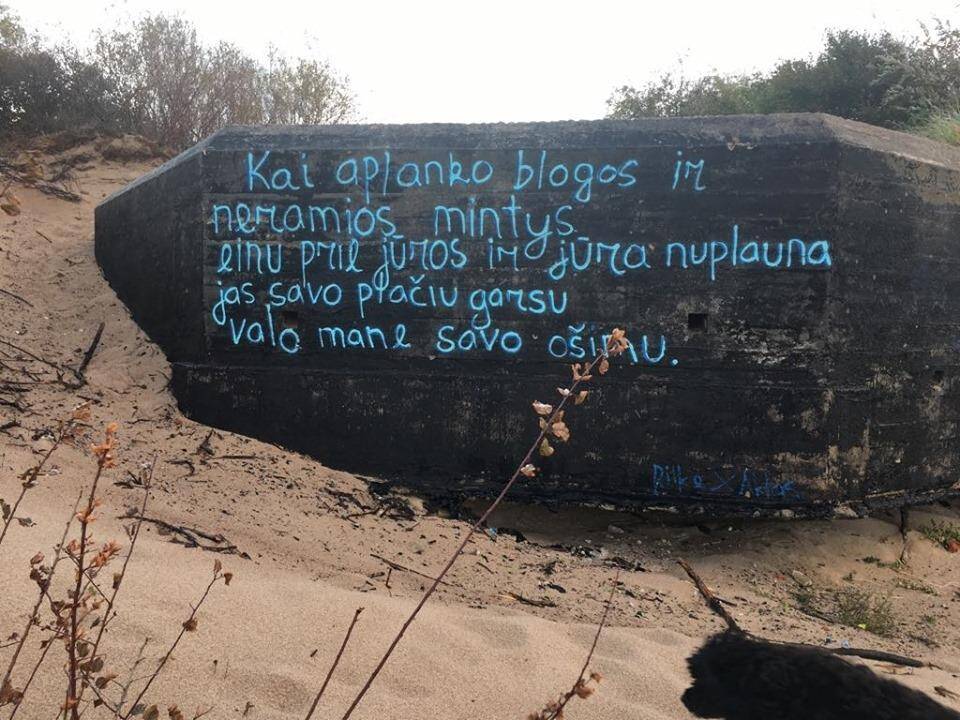 Kai aplanko blogos ir
neramios mintys
einu prie jūros ir jūra nuplauna
jas savo plačiu garsu
valo mane savo ošimu.
Rilke